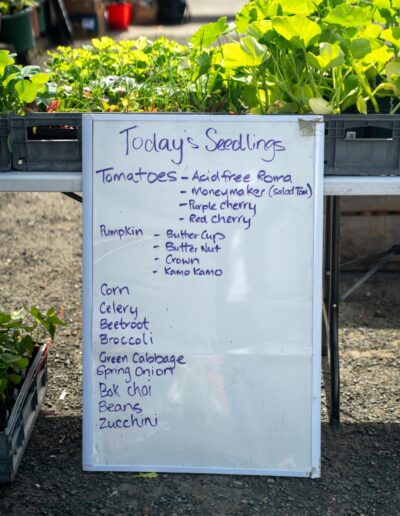 Today's Seedlings
Tomatoes - Acidfree Roma
- Moneymaker (Salad Tom)
- Purple cherry
- Red Cherry
Pumpkin - ButterCup
- Butter Nut
- Crown
- Kamo Kamo
Corn
Celery
Beetroot
Broccoli
Green Cabbage
Spring Onion
Bok choi
Beans
Zucchini